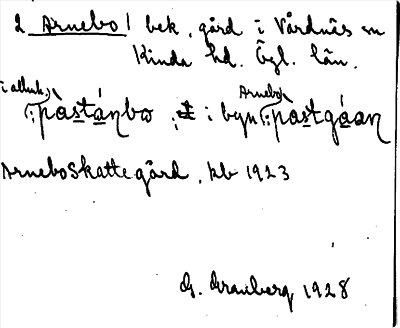 2 Arnebo / bek, gård i Vårdnäs sn
Kinda hd. Ögl. län.
i allmh. Arnebo
i pàstánbo , i byn i pàstgáan
Arnebo Skattegård, kb 1923
G. Granberg 1928